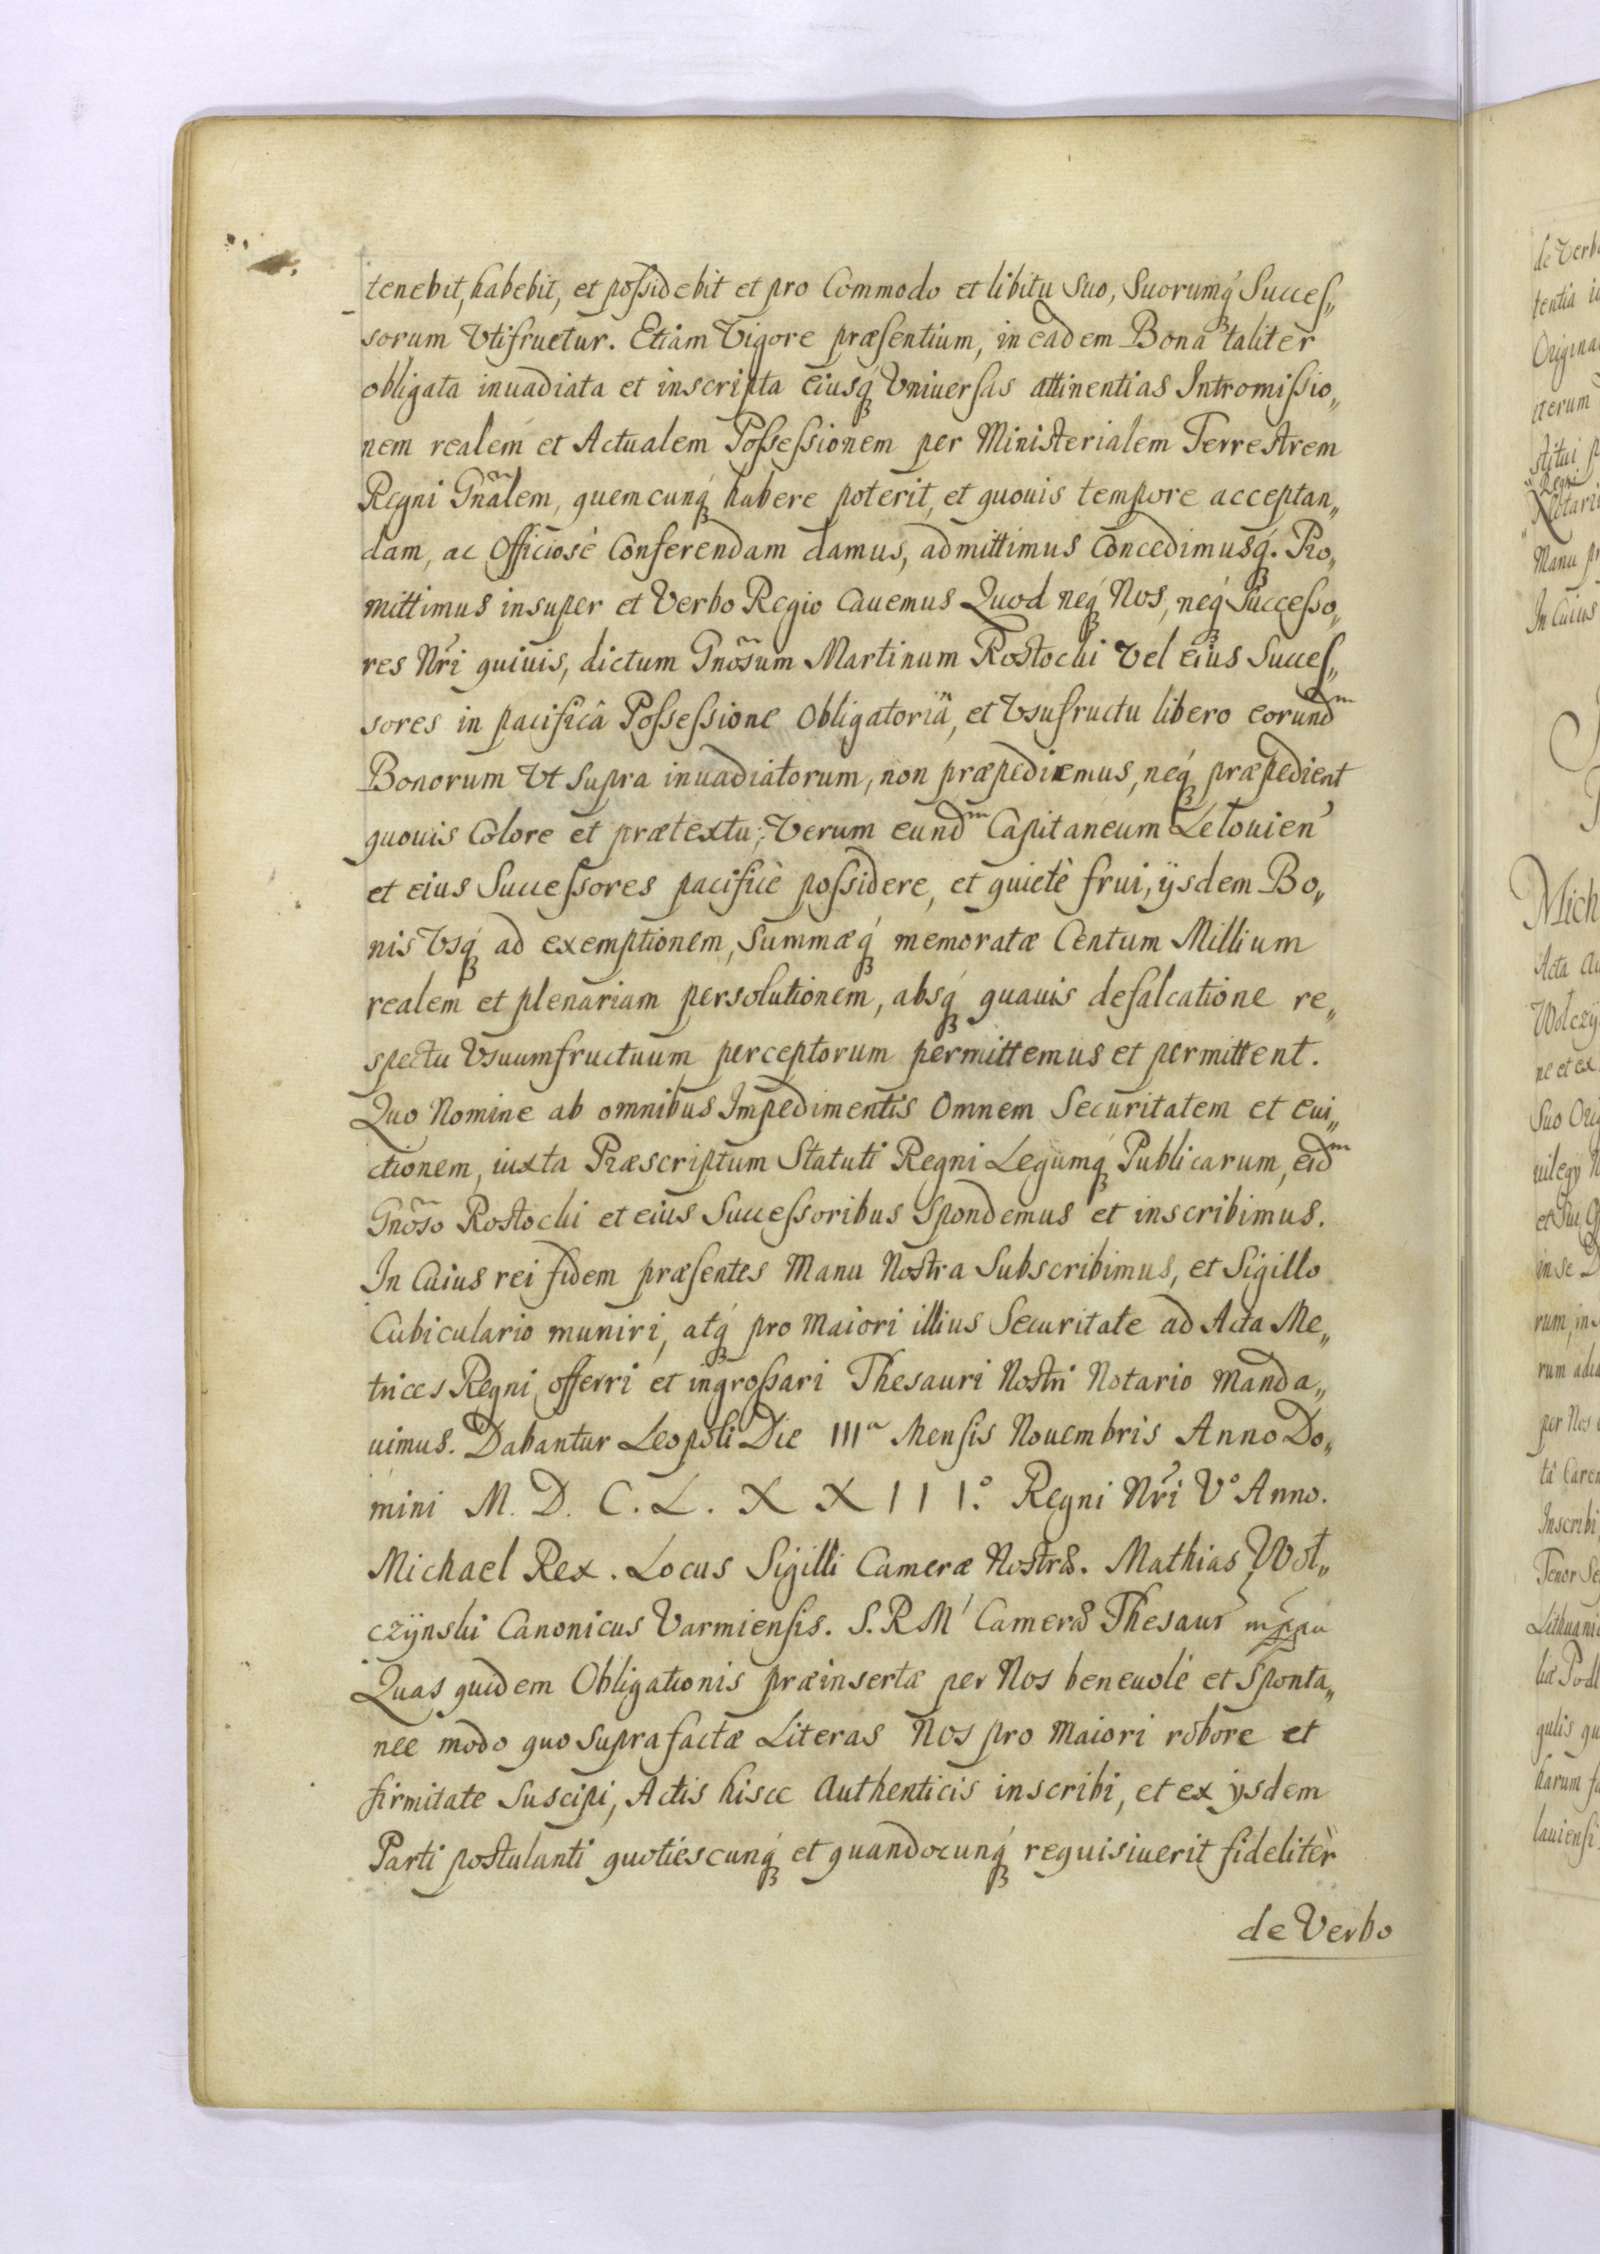 tenebit, habebit, et possidebit et pro Commodo et libitu Suo, Suorumq́ꝫ Succes„
sorum Vtifruetur. Etiam Vigore præsentium, in eadem Bona taliter
obligata inuadiata et inscripta eiusq́ꝫ Vniuersas attinentias Intromissio„
nem realem et Actualem Possessionem per Ministerialem Terrestrem
Regni Gñalem, quemcunq́ꝫ habere poterit, et quouis tempore acceptan„
dam, ac Officiosè Conferendam damus, admittimus Concedimusq́ꝫ. Pro„
mittimus insuper et Verbo Regio Cauemus Quod neq́ꝫ Nos, neq́ꝫ Successo„
res Nr̃i quiuis, dictum Gnõsum Martinum Rostocki Vel eius Succes„
sores in pacificâ Possessione Obligatoriâ, et Vsufructu libero eorundᵐ
Bonorum Vt Supra inuadiatorum, non præpediemus, neq́ꝫ præpedient
quouis Colore et prætextu; Verum eundᵐ Capitaneum Letouien̕
et eius Successores pacificè possidere, et quietè frui, ysdem Bo„
nis Vsq́ꝫ ad exemptionem, Summæq́ꝫ memoratæ Centum Millium
realem et plenariam persolutionem, absq́ꝫ quauis defalcatione re„
spectu Vsuumfructuum perceptorum permittemus et permittent.
Quo Nomine ab omnibus Impedimentis Omnem Securitatem et eui„
ctionem, iuxta Præscriptum Statuti Regni Legumq́ꝫ Publicarum, eidᵐ
Gnõso Rostocki et eius Successoribus Spondemus et inscribimus.
In Cuius rei fidem præsentes Manu Nostra Subscribimus, et Sigillo
Cubiculario muniri, atq́ꝫ pro Maiori illius Securitate ad Acta Me„
trices Regni offerri et ingrossari Thesauri Nostri Notario Manda„
uimus. Dabantur Leopoli Die IIIᵃ Mensis Nouembris Anno Do„
mini M. D. C. L. X X I I I.° Regni Nr̃i V° Anno.
Michael Rex. Locus Sigilli Cameræ Nostræ. Mathias Woł„
czÿnski Canonicus Varmiensis. S. R M̕ Cameræ Thesaur̃ mppa
Quas quidem Obligationis præinsertæ per Nos beneuolè et Sponta„
nee modo quo Supra factæ Literas Nos pro Maiori robore et
firmitate Suscipi, Actis hisce Authenticis inscribi, et ex ysdem
Parti postulanti quotiescunq́ꝫ et quandocunq́ꝫ requisiuerit fidelitèr
de Verbo